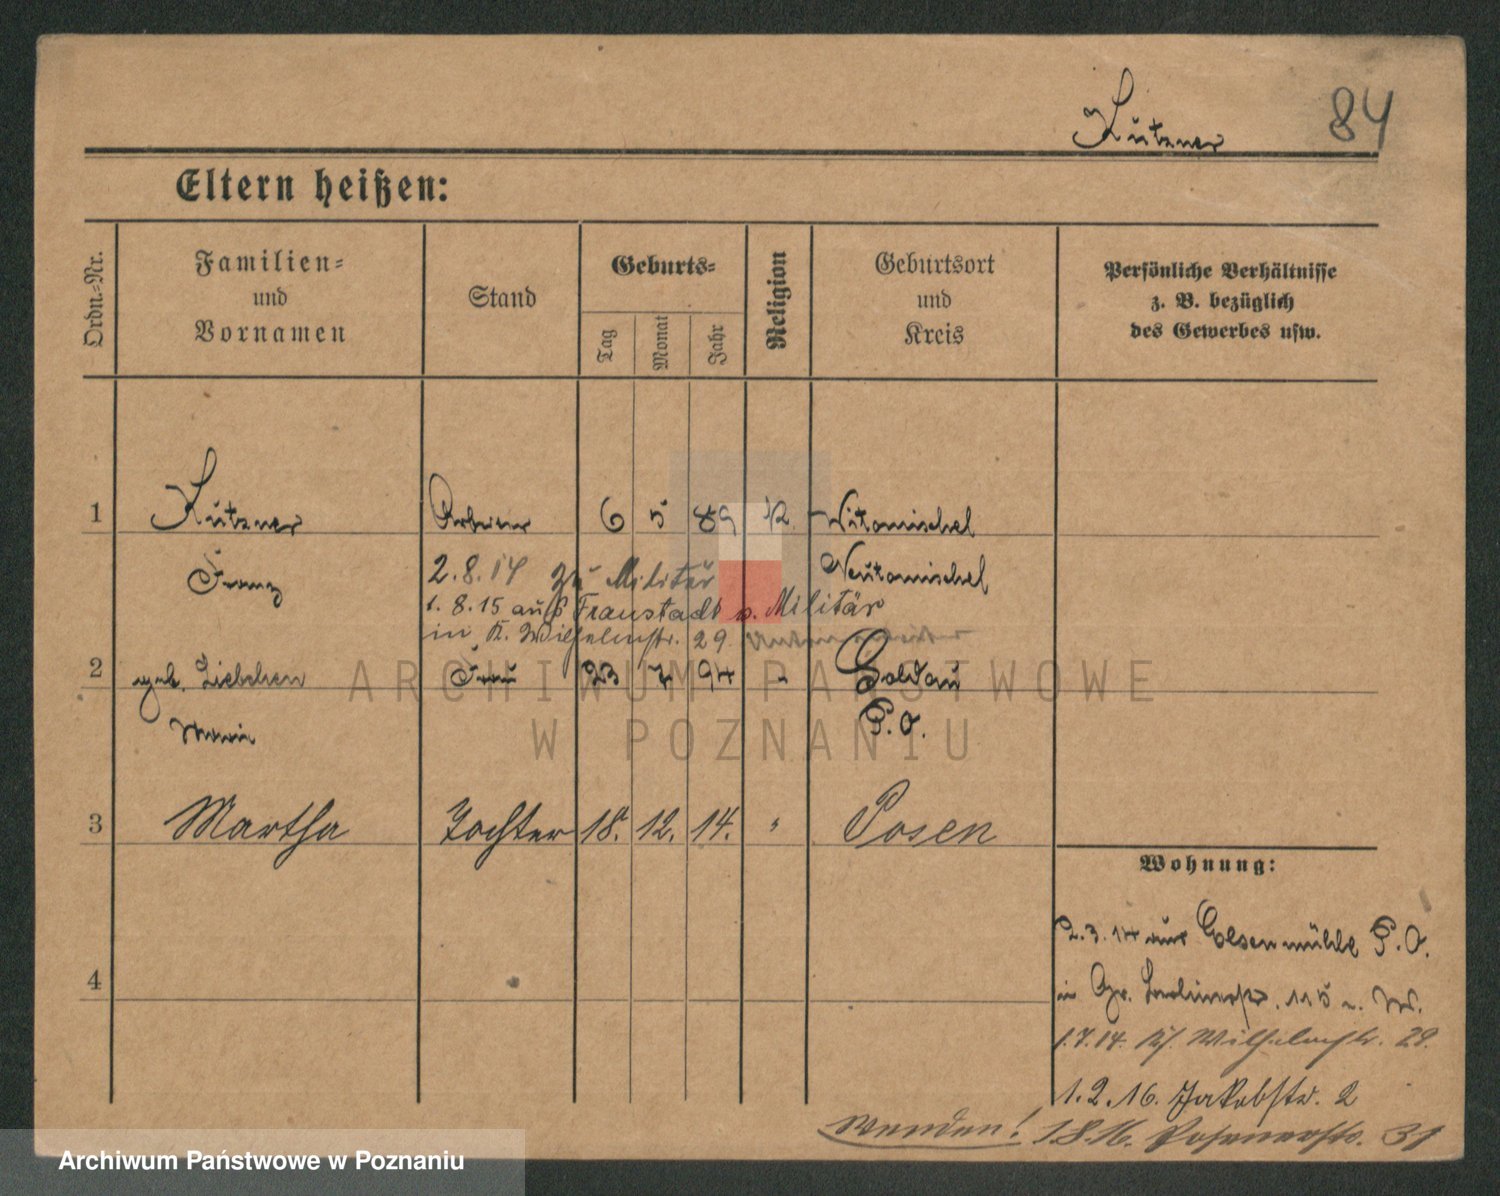 Kutzner 84
Eltern heißen:
Ordn.-Nr.
Familien-
und
Vornamen
Stand
Geburts-
Tag
Monat
Jahr
Religion
Geburtsort
und
Kreis
Persönliche Verhältnisse
z. B. bezüglich
des Gewerbes usw.
1 Kutzner Arbeiter 6 5 89 K. Witomischel
Franz Neutomischel
2.8.14 zu Militär
1.8.15 aus Fraustadt v. Militär
in K. Wilhelmstr. 29.
2 geb. Liebchen Frau 23 7 94 " Soldau
Marie P.O.
3 Martha Tochter 18. 12. 14. " Posen
4
Wohnung:
2.3.14 aus Elsenmühle P.O.
in Gr. 115
1.7.14. Wilhelmstr. 29.
1.2.16. Jakobstr. 2
wenden! 1.8.16. Posenerstr. 31
ARCHIWUM PAŃSTWOWE
W POZNANIU
Archiwum Państwowe w Poznaniu